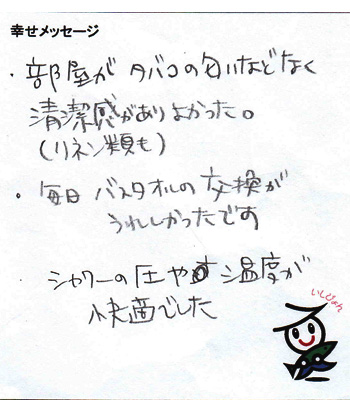 幸せメッセージ
・部屋が タバコの匂いなどなく
清潔感がありよかった。
(リネン類も)
・毎日 バスタオルの交換が
うれしかったです
シャワーの圧や 温度が
快適でした
いしぴょん